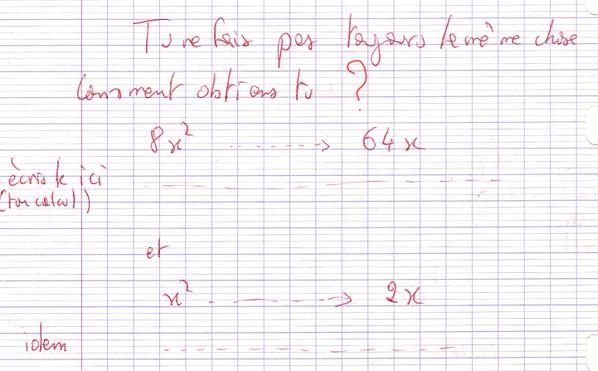 Tu ne fais pas toujours le même chose
Comment obtiens tu ?
8x² --------> 64x
écris le ici
(ton calcul)
et
x² --------> 2x
idem